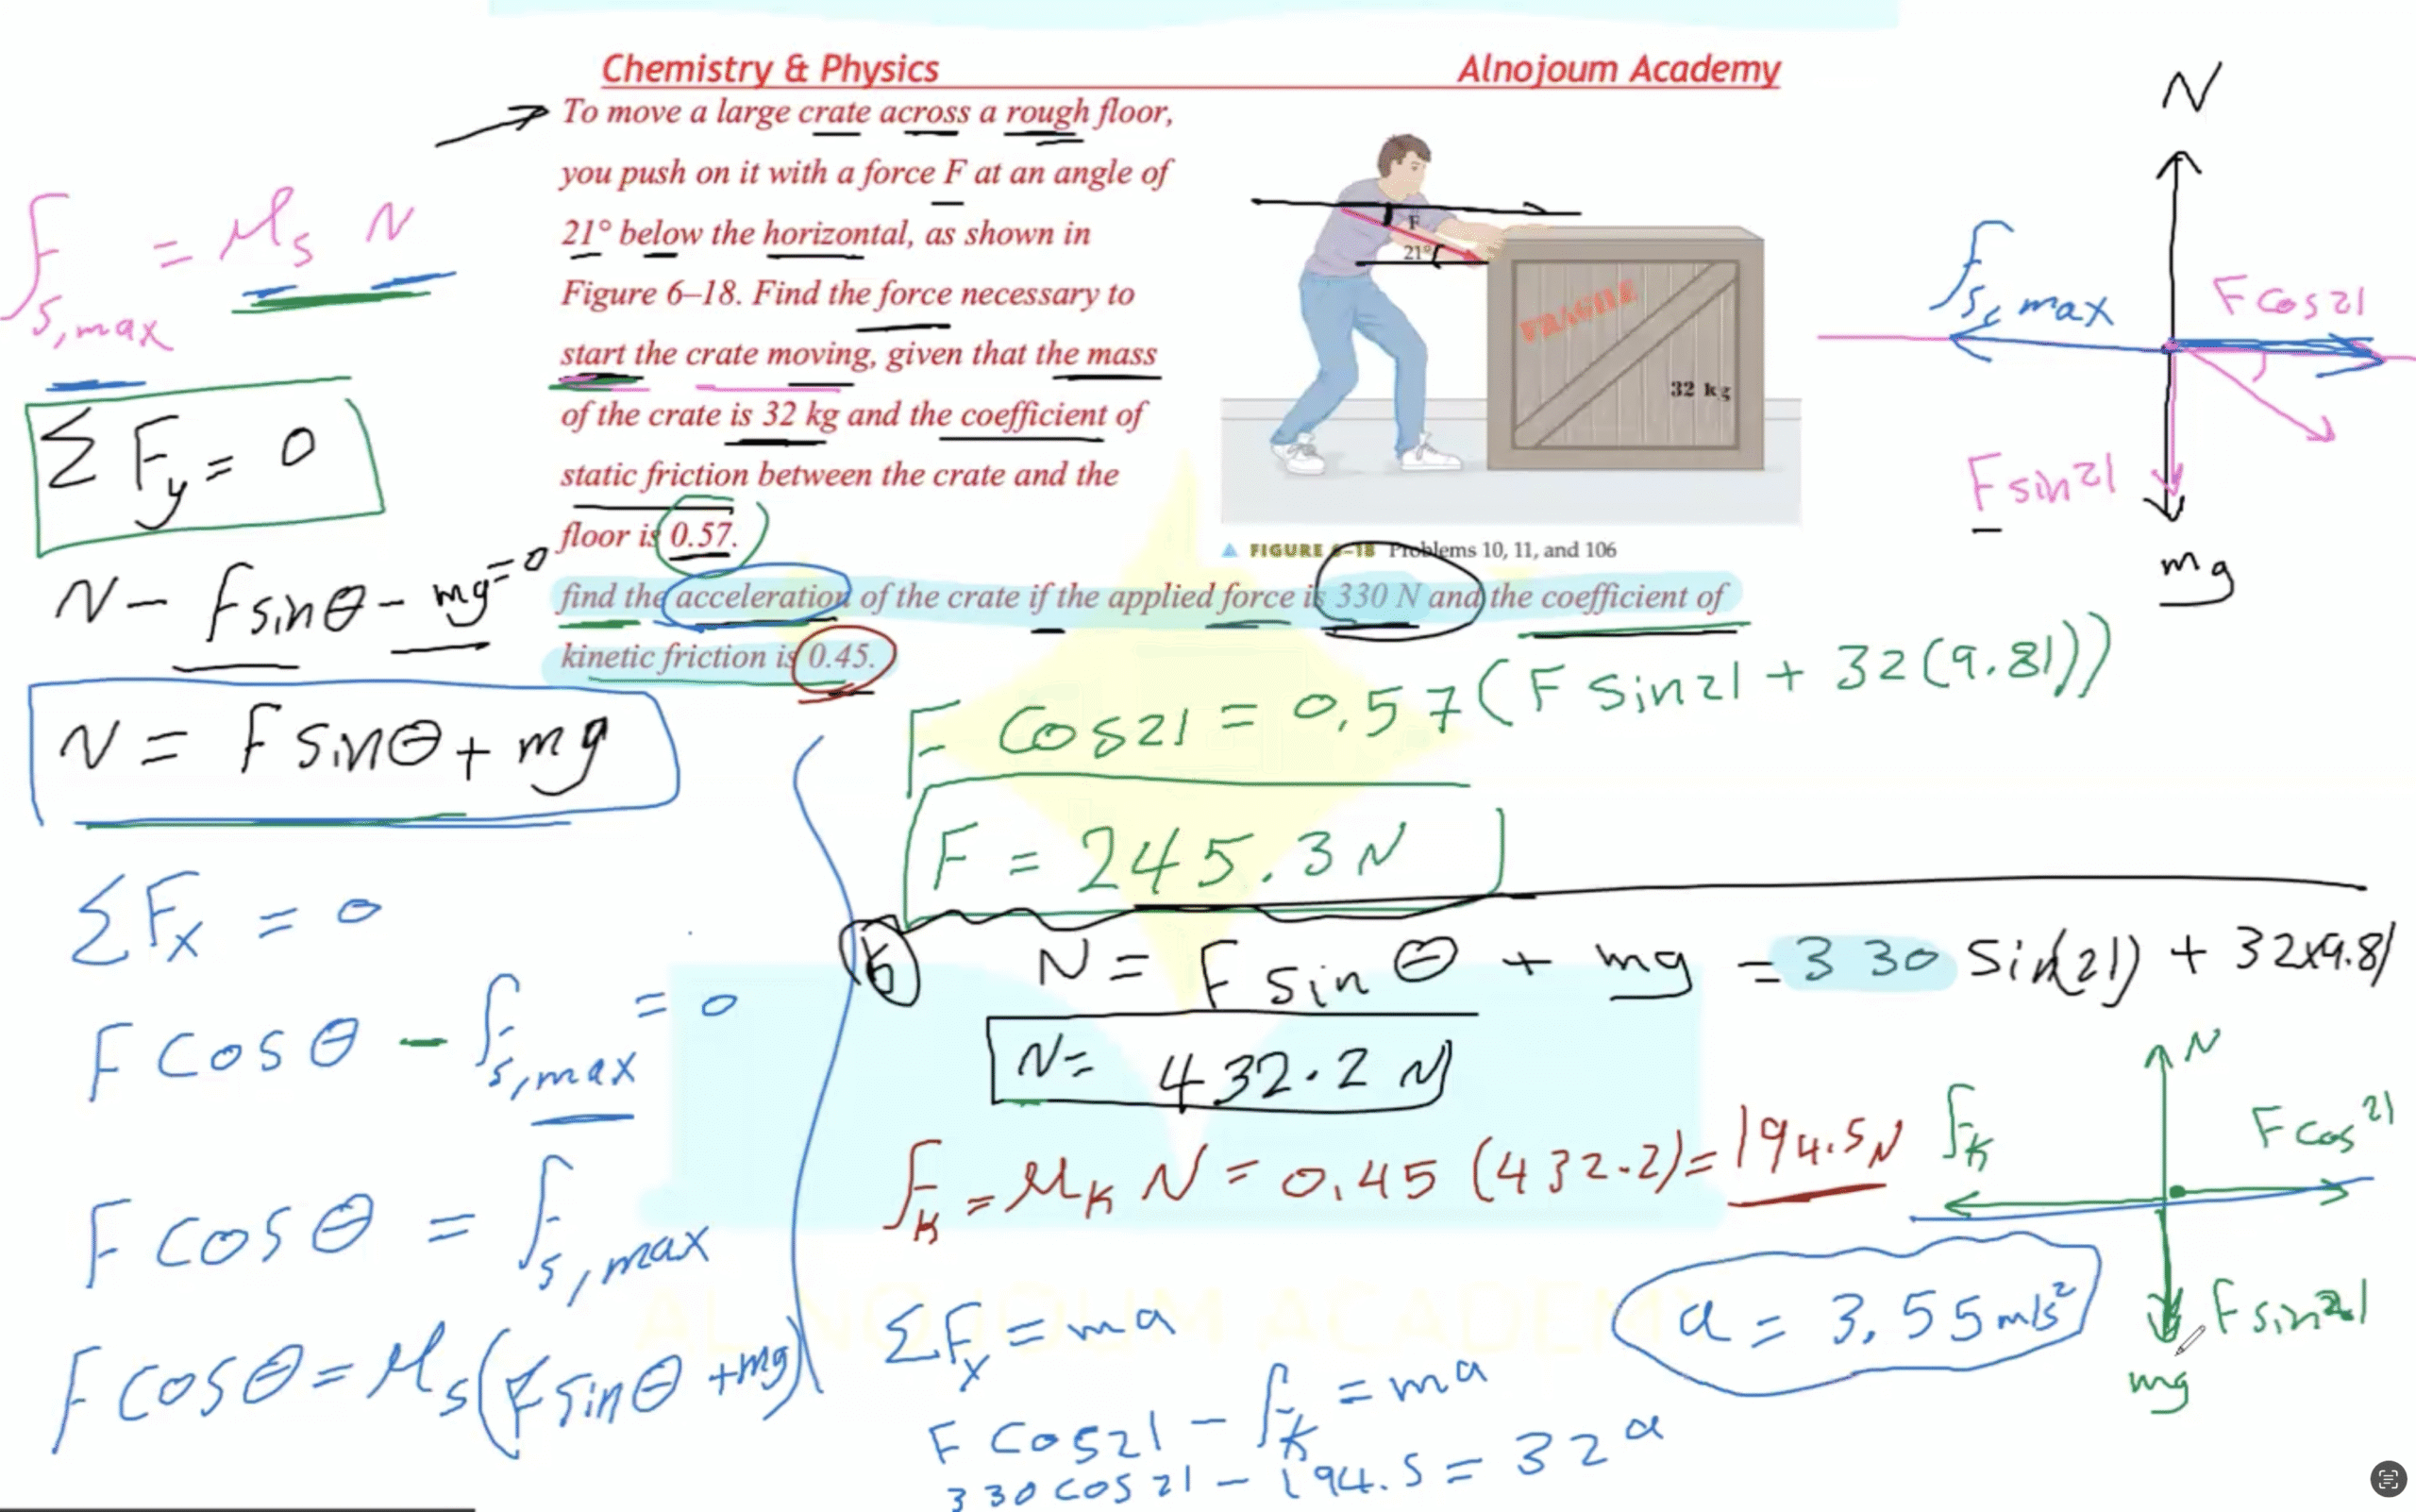 Chemistry & Physics
Alnojoum Academy
To move a large crate across a rough floor,
you push on it with a force F at an angle of
21° below the horizontal, as shown in
Figure 6–18. Find the force necessary to
start the crate moving, given that the mass
of the crate is 32 kg and the coefficient of
static friction between the crate and the
floor is 0.57.
find the acceleration of the crate if the applied force is 330 N and the coefficient of
kinetic friction is 0.45.
F
21°
FRAGILE
32 kg
FIGURE 6–18 Problems 10, 11, and 106
N
f s, max
F cos 21
F sin 21
mg
f s, max = μs N
Σ Fy = 0
N - F sin θ - mg = 0
N = F sin θ + mg
Σ Fx = 0
F cos θ - f s, max = 0
F cos θ = f s, max
F cos θ = μs (F sin θ + mg)
F cos 21 = 0.57 (F sin 21 + 32 (9.81))
F = 245.3 N
b
N = F sin θ + mg = 330 sin(21) + 32x9.81
N = 432.2 N
fk = μk N = 0.45 (432.2) = 194.5 N
Σ Fx = ma
F cos 21 - fk = ma
330 cos 21 - 194.5 = 32 a
a = 3.55 m/s²
N
fk
F cos 21
F sin 21
mg
ALNOJOUM ACADEMY